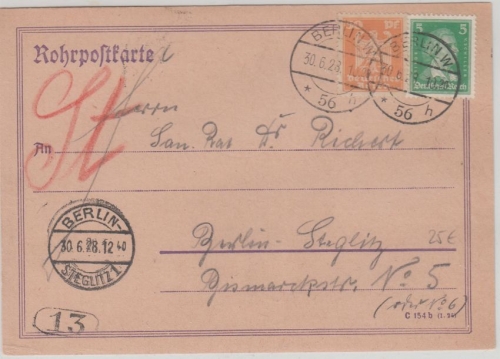 Rohrpostkarte
St
BERLIN W
30.6.28.
* 56 h
Pf
Deutsches Reich
BERLIN W
* 56 h
5
Deutsches Reich
Herrn
An San. Rat Dr Richert
BERLIN-
30.6.28.12 40
STEGLITZ 1
Berlin-Steglitz
25€
Bismarckstr. No 5
(oder No 6)
C 154 b
13